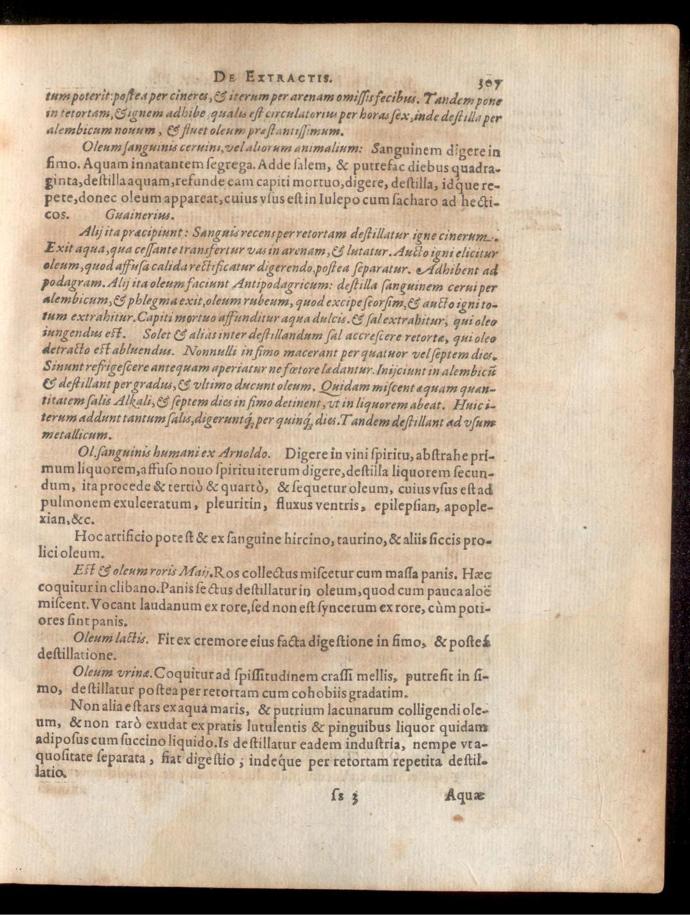 DE EXTRACTIS. 307
tum poterit: postea per cineres, & iterum per arenam omissis fecibus. Tandem pone
in retortam, & ignem adhibe, qualis est circulatorius per horas sex, inde destilla per
alembicum nouum, & fluet oleum præstantissimum.
Oleum sanguinis ceruini, vel aliorum animalium: Sanguinem digere in
fimo. Aquam innatantem segrega. Adde salem, & putrefac diebus quadra-
ginta, destilla aquam, refunde eam capiti mortuo, digere, destilla, idque re-
pete, donec oleum appareat, cuius vsus est in Iulepo cum sacharo ad hecti-
cos. Guainerius.
Alij ita præcipiunt: Sanguis recens per retortam destillatur igne cinerum.
Exit aqua, qua cessante transfertur vas in arenam, & lutatur. Aucto igni elicitur
oleum, quod affusa calida rectificatur digerendo, postea separatur. Adhibent ad
podagram. Alij ita oleum faciunt Antipodagricum: destilla sanguinem cerui per
alembicum, & phlegma exit, oleum rubeum, quod excipe seorsim, & aucto igni to-
tum extrahitur. Capiti mortuo affunditur aqua dulcis. & sal extrahitur, qui oleo
iungendus est. Solet & alias inter destillandum sal accrescere retortæ, qui oleo
detracto est abluendus. Nonnulli in fimo macerant per quatuor vel septem dies.
Sinunt refrigescere antequam aperiatur ne fœtore lædantur. Inijciunt in alembicū
& destillant per gradus, & vltimo ducunt oleum. Quidam miscent æquam quan-
titatem salis Alkali, & septem dies in fimo detinent, vt in liquorem abeat. Huic i-
terum addunt tantum salis, digeruntq́; per quinq́; dies. Tandem destillant ad vsum
metallicum.
Ol. sanguinis humani ex Arnoldo. Digere in vini spiritu, abstrahe pri-
mum liquorem, affuso nouo spiritu iterum digere, destilla liquorem secun-
dum, ita procede & tertiò & quartò, & sequetur oleum, cuius vsus est ad
pulmonem exulceratum, pleuritin, fluxus ventris, epilepsian, apople-
xian, &c.
Hoc artificio potest & ex sanguine hircino, taurino, & aliis siccis pro-
lici oleum.
Est & oleum roris Maij. Ros collectus miscetur cum massa panis. Hæc
coquitur in clibano. Panis sectus destillatur in oleum, quod cum pauca aloë
miscent. Vocant laudanum ex rore, sed non est syncerum ex rore, cùm poti-
ores sint panis.
Oleum lactis. Fit ex cremore eius facta digestione in fimo, & postea
destillatione.
Oleum vrinæ. Coquitur ad spissitudinem crassi mellis, putrefit in fi-
mo, destillatur postea per retortam cum cohobiis gradatim.
Non alia est ars ex aqua maris, & putrium lacunarum colligendi ole-
um, & non rarò exudat ex pratis lutulentis & pinguibus liquor quidam
adiposus cum succino liquido. Is destillatur eadem industria, nempe vt a-
quositate separata, fiat digestio; indeque per retortam repetita destil-
latio.
ss 3 Aquæ